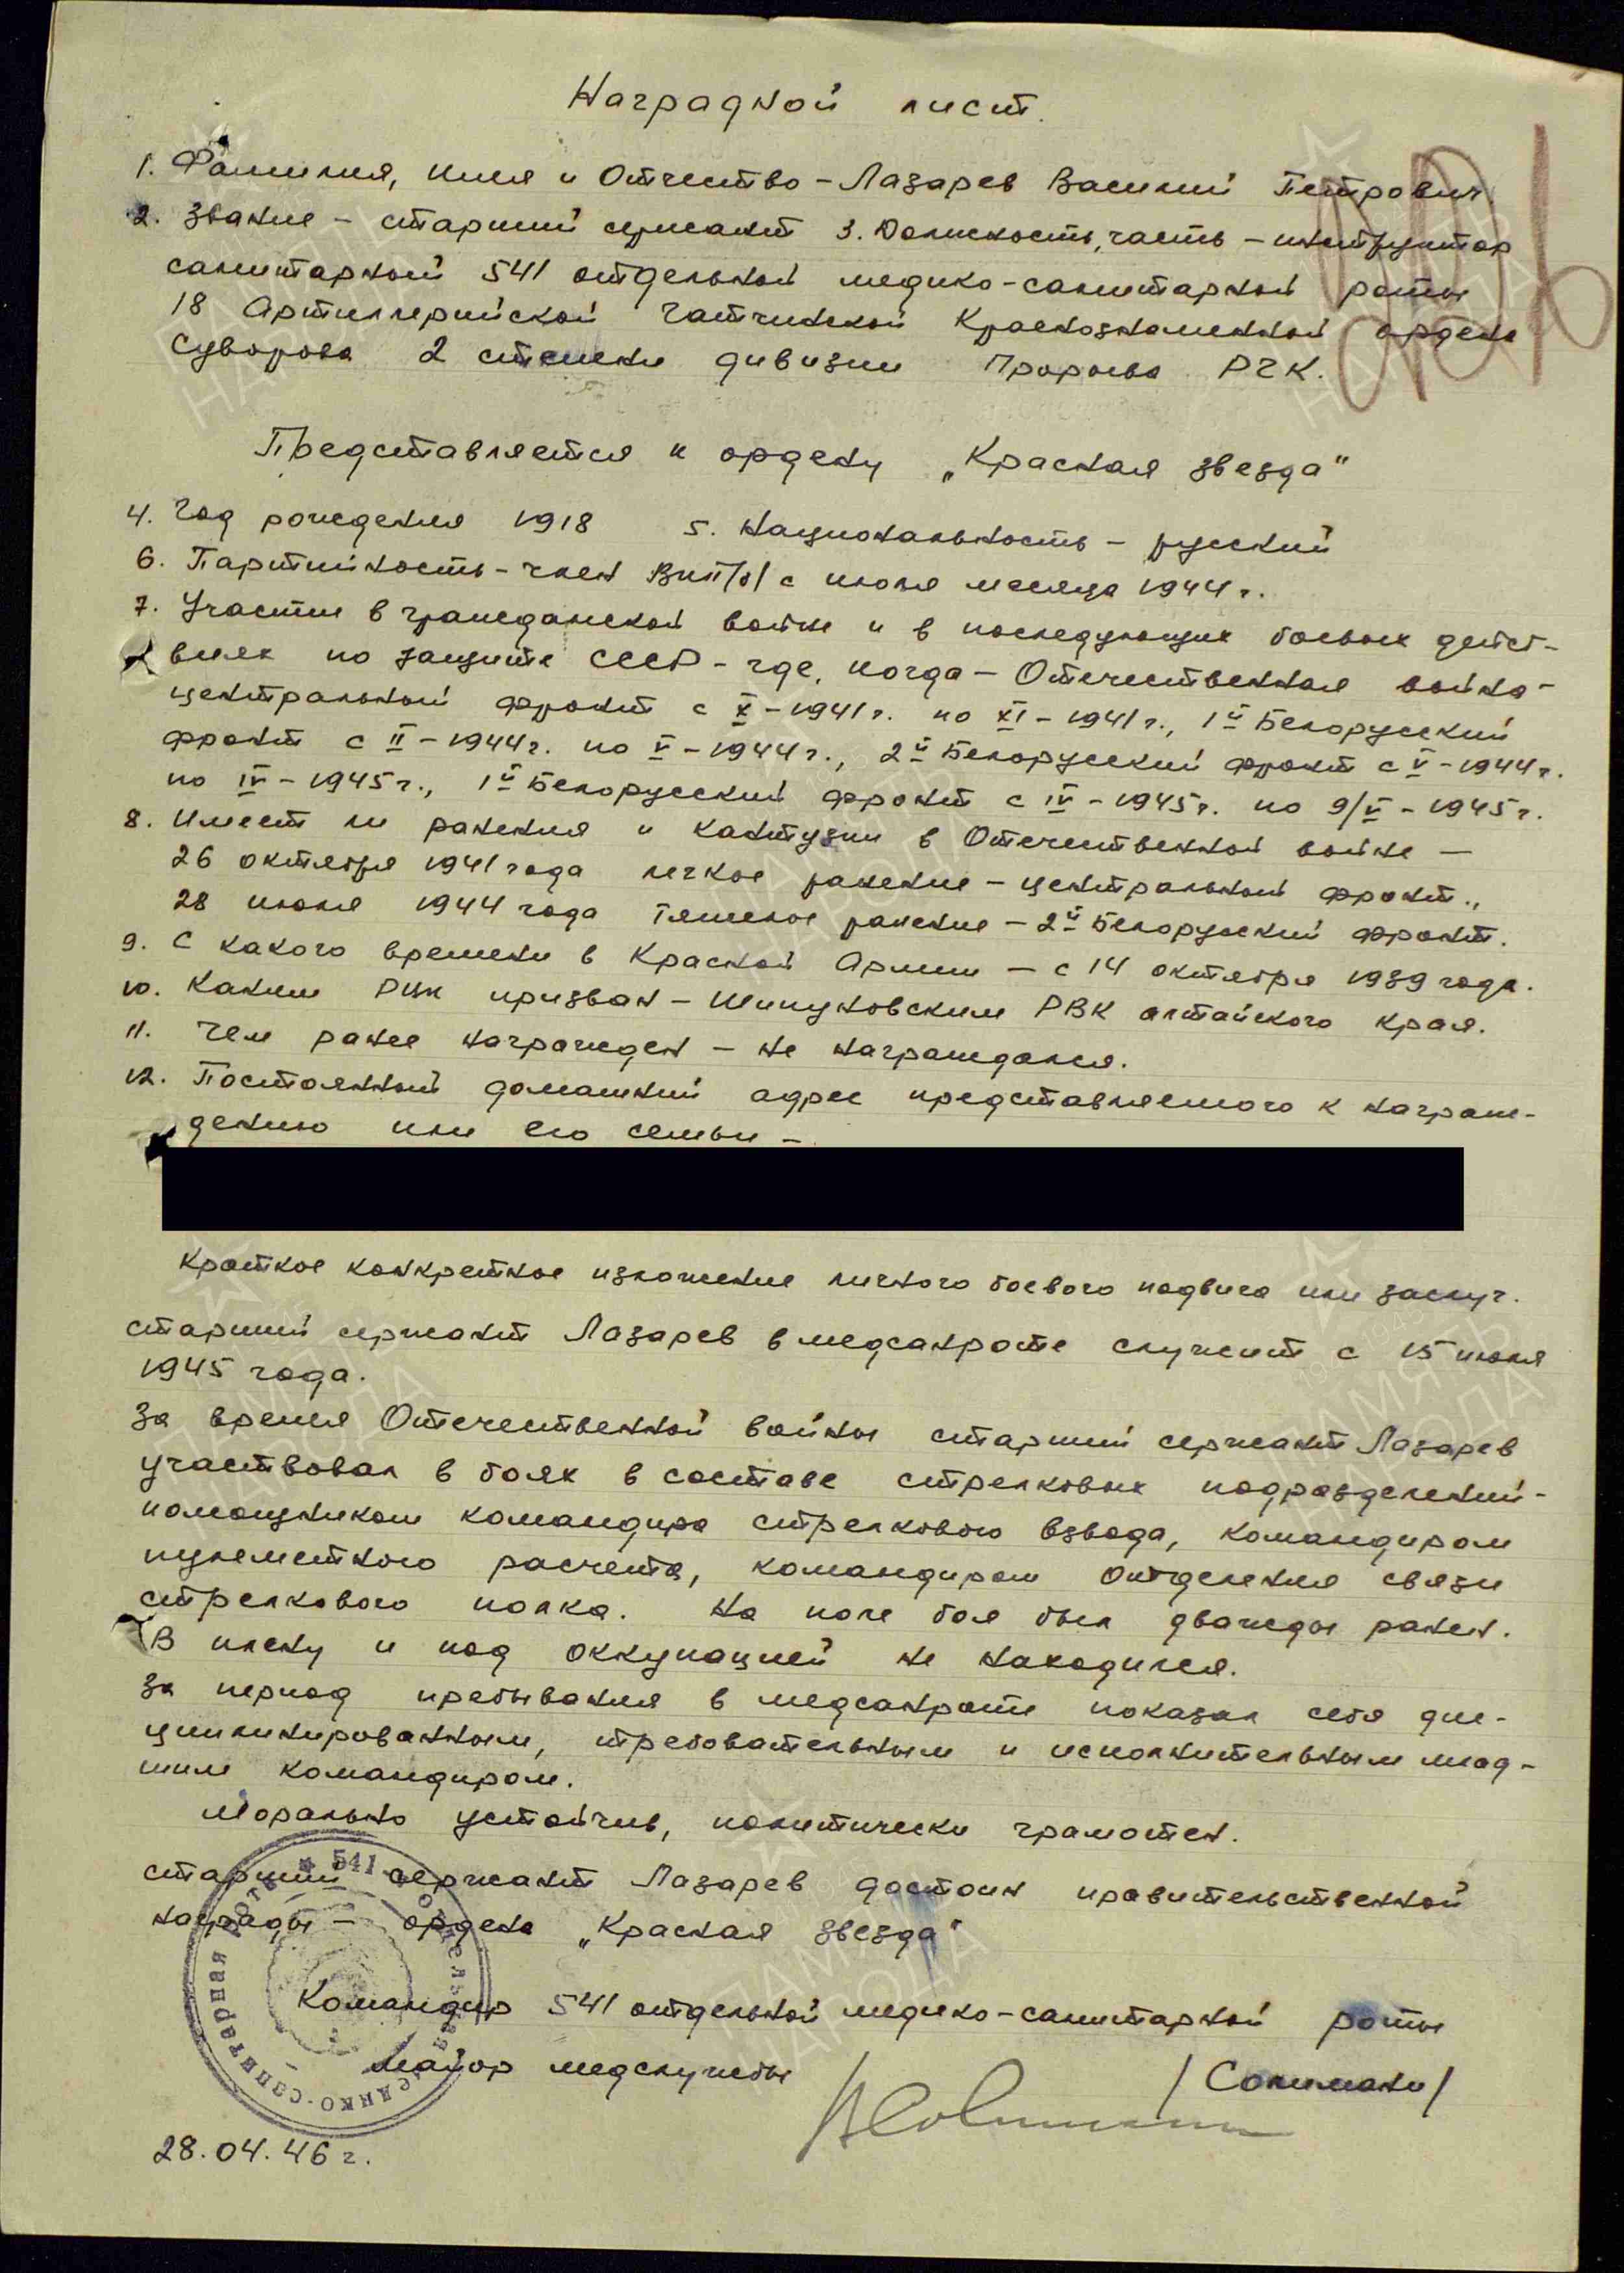 Наградной лист.
1. Фамилия, Имя и Отчество – Лазарев Василий Петрович.
2. Звание – старший сержант 3. Должность, часть – инструктор
санитарный 541 отдельной медико-санитарной роты
18 Артиллерийской Гатчинской Краснознаменной ордена
Суворова 2 степени дивизии Прорыва РГК.
Представляется к ордену „Красная звезда"
4. Год рождения 1918 5. Национальность – русский
6. Партийность – член ВКП/б/ с июля месяца 1944 г.
7. Участие в гражданской войне и в последующих боевых дейст-
виях по защите СССР – где, когда – Отечественная война –
центральный фронт с X – 1941 г. по XI – 1941 г., 1й Белорусский
фронт с II – 1944 г. по V – 1944 г., 2й Белорусский фронт с V – 1944 г.
по IV – 1945 г., 1й Белорусский фронт с IV – 1945 г. по 9/V – 1945 г.
8. Имеет ли ранения и контузии в Отечественной войне –
26 октября 1941 года легкое ранение – центральный фронт.,
28 июля 1944 года тяжелое ранение – 2й Белорусский фронт.
9. С какого времени в Красной Армии – с 14 октября 1939 года.
10. Каким РВК призван – Шипуновским РВК алтайского края.
11. Чем ранее награжден – не награждался.
12. Постоянный домашний адрес представляемого к награж-
дению или его семьи –
Краткое конкретное изложение личного боевого подвига или заслуг.
старший сержант Лазарев в медсанроте служит с 15 июля
1945 года.
За время Отечественной войны старший сержант Лазарев
участвовал в боях в составе стрелковых подразделений –
помощником командира стрелкового взвода, командиром
пулеметного расчета, командиром отделения связи
стрелкового полка. На поле боя был дважды ранен.
В плену и под оккупацией не находился.
За период пребывания в медсанроте показал себя дис-
циплинированным, требовательным и исполнительным млад-
шим командиром.
Морально устойчив, политически грамотен.
старший сержант Лазарев достоин правительственной
награды – ордена „Красная звезда"
Командир 541 отдельной медико-санитарной роты
майор медслужбы /Солиман/
28.04.46 г.
541 отдельная медико-санитарная рота
ПАМЯТЬ НАРОДА